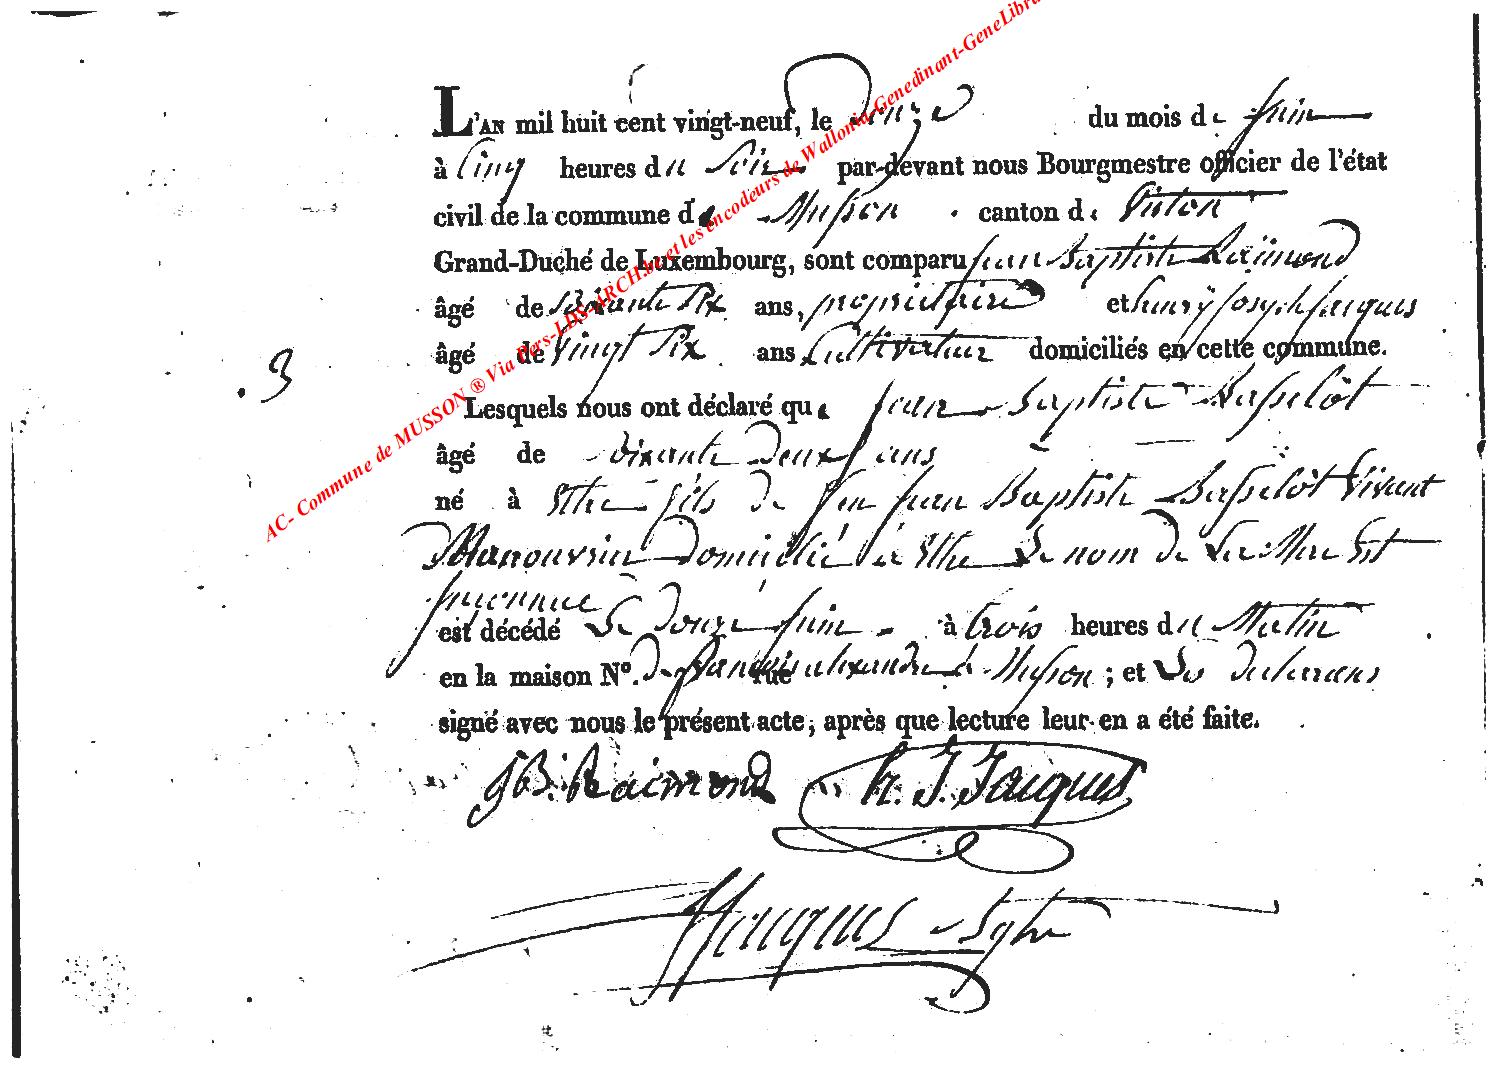 L'AN mil huit cent vingt-neuf, le Douze du mois de Juin
à Cinq heures du Soir par-devant nous Bourgmestre officier de l'état
civil de la commune de Musson canton de Virton
Grand-Duché de Luxembourg, sont comparu Jean Baptiste Raimond
âgé de Soixante Six ans, propriétaire et henry Joseph Jacques
âgé de Vingt Six ans Cultivateur domiciliés en cette commune.
3
Lesquels nous ont déclaré que Jean Baptiste Basselôt
âgé de Soixante Deux ans
né à Ethe fils de feu Jean Baptiste Basselôt Vivant
Manouvrier Domicilié à Ethe Le nom de La Mere Est
inconnue
est décédé Le douze Juin à trois heures du Matin
en la maison N.º de rue françois alexandre à Musson ; et Les declarans
signé avec nous le présent acte, après que lecture leur en a été faite.
JB. Raimond h. J. Jacques
Jacques
AC- Commune de MUSSON ® Via Pers-LDS-ARCH.be et les encodeurs de Wallonia-Genedinant-GeneLibra